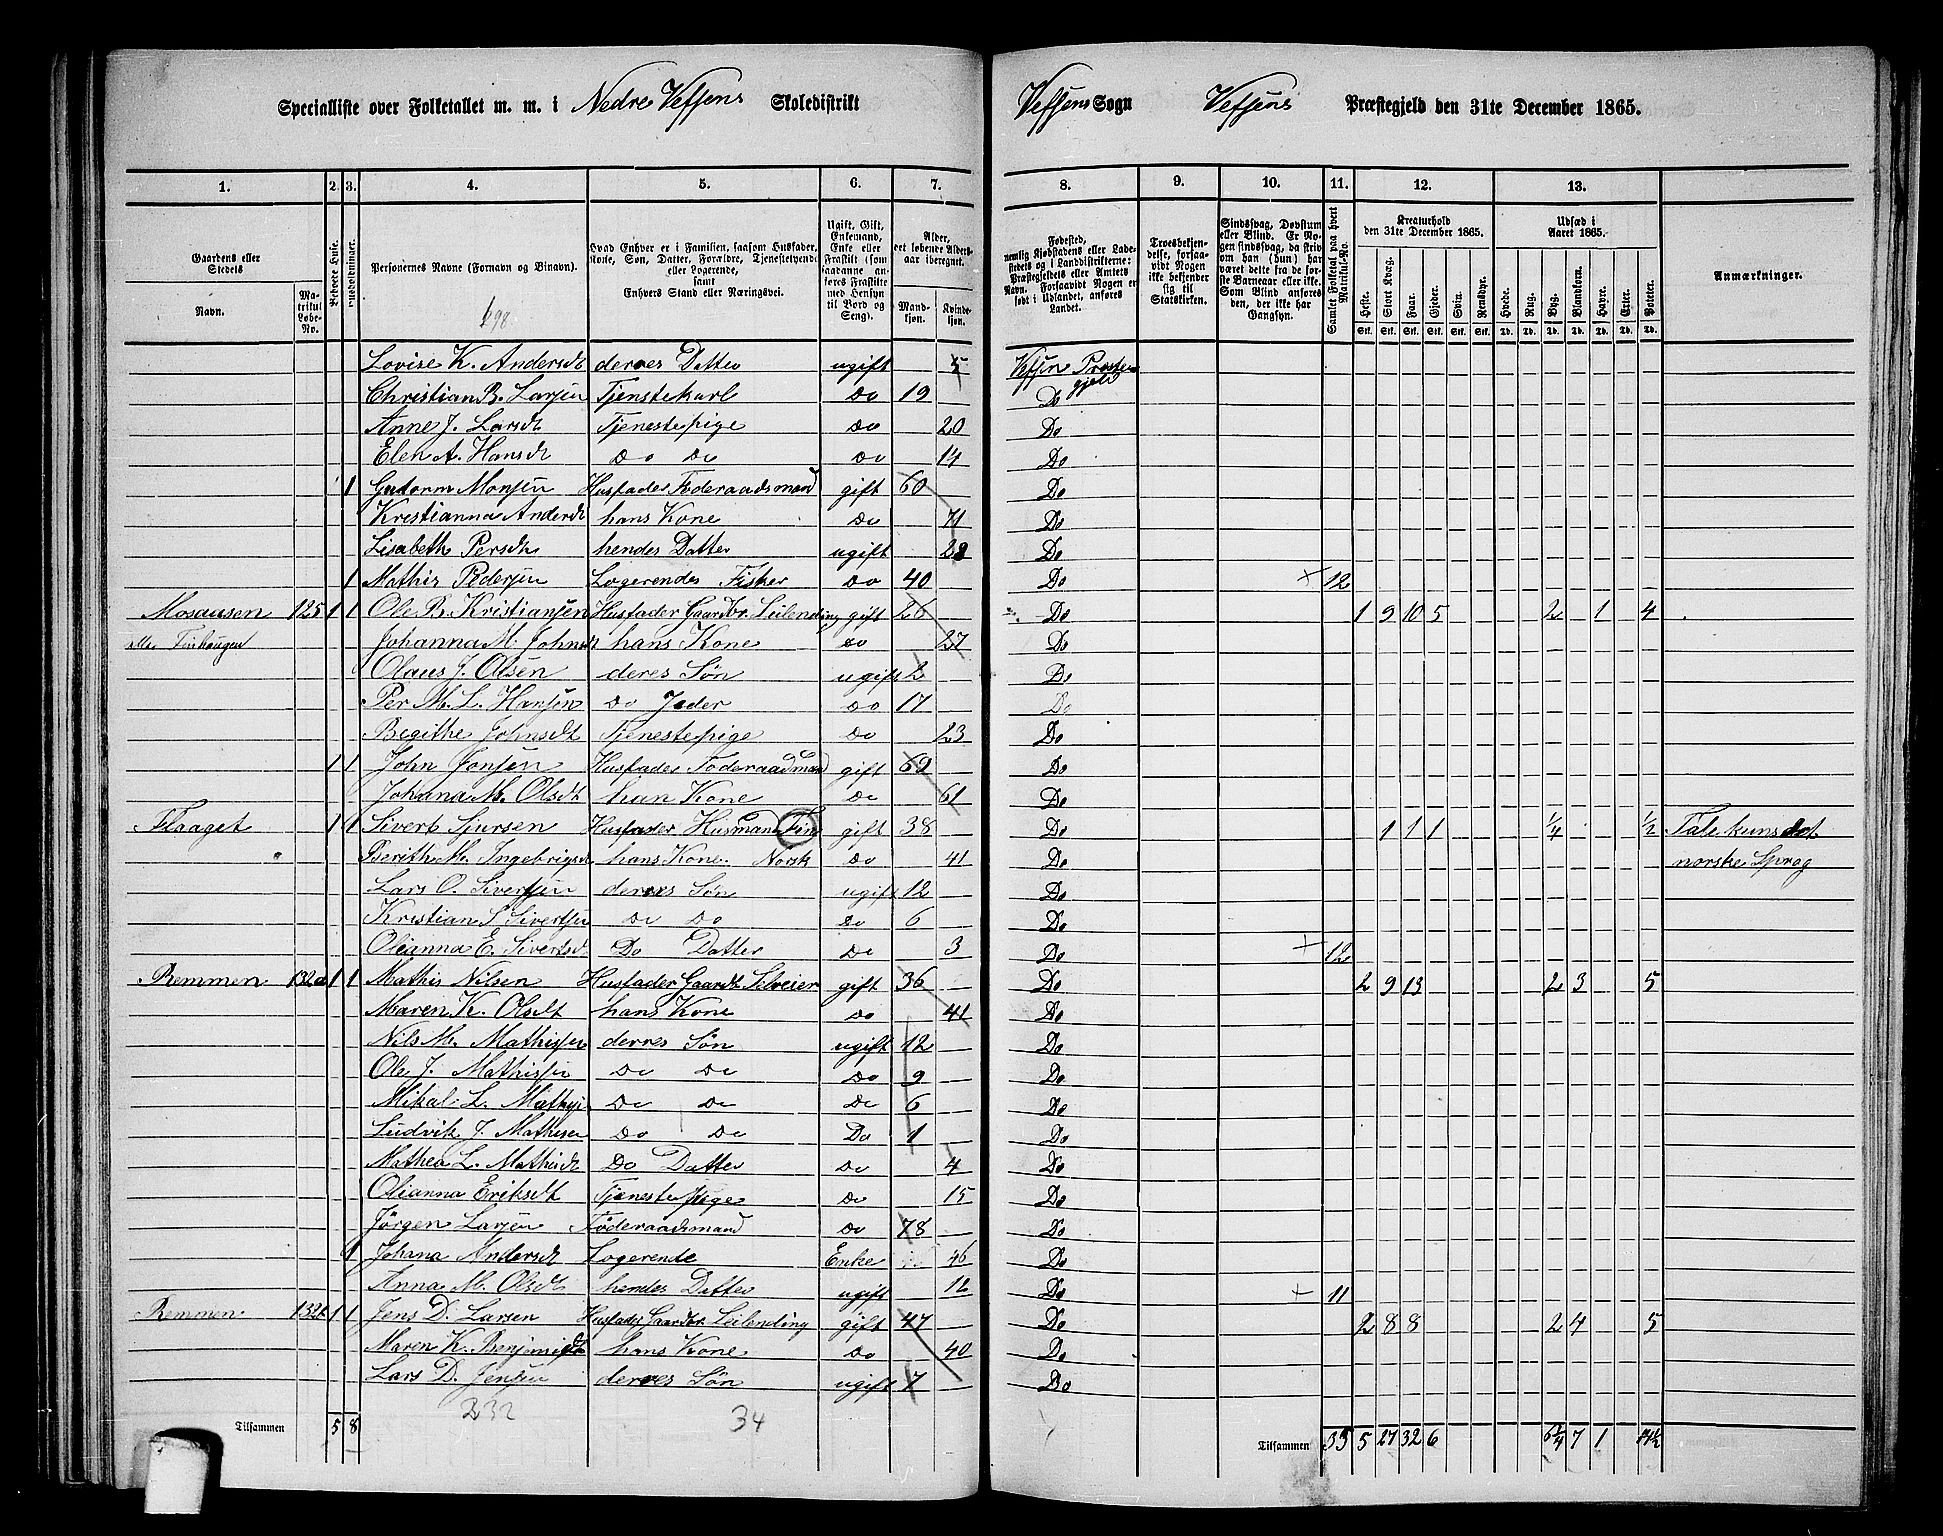 Specialliste over Folketallet m. m. i Nedre Vefsens Skoledistrikt Vefsens Sogn Vefsens Præstegjeld den 31te December 1865.
1. 2. 3. 4. 5. 6. 7. 8. 9. 10. 11. 12. 13.
Gaardens eller Stedets Navn. Matrikul Løbe-No. Beboede Huse. Huusholdninger. Personernes Navne (Fornavn og Binavn). Hvad Enhver er i Familien, saasom Husfader, Kone, Søn, Datter, Forældre, Tjenestetyende eller Logerende, samt Enhvers Stand eller Næringsvei. Ugift, Gift, Enkemand, Enke eller Fraskilt (som saadanne anføres Fraskilte med Hensyn til Bord og Seng). Alder, det løbende Alders-aar iberegnet. Mandkjøn. Kvindekjøn. Fødested, nemlig Kjøbstadens eller Ladestedets og i Landdistrikterne: Præstegjeldets eller Amtets Navn. Forsaavidt Nogen er født i Udlandet, anføres Landet. Troesbekjendelse, forsaavidt Nogen ikke bekjender sig til Statskirken. Sindssvag, Døvstum eller Blind. Er Nogen sindssvag, da skrives om han (hun) har været dette fra de første Barneaar eller ikke. Som Blind anføres den, der ikke har Gangsyn. Samlet Folketal paa hvert Matrikul-No. Kreaturhold den 31te December 1865. Heste. Stort Kvæg. Faar. Gjeder. Svin. Rensdyr. Udsæd i Aaret 1865. Hvede. Rug. Byg. Blandkorn. Havre. Erter. Poteter. Anmærkninger.
Lovise K. Andersdt derres Datter ugift 5 Vefsen Præstegjeld
Christian B. Larsen Tjenstekarl Do 19 Do
Anne J. Larsdt Tjenestepige Do 20 Do
Elen A. Hansdt Do Do Do 14 Do
1 Gutorm Monsen Husfader Føderaadsmand gift 60 Do
Kristianna Andersdt hans Kone Do 71 Do
Lisabeth Persdt hendes Datter ugift 28 Do
1 Mathis Pedersen Logerendes Fisker Do 40 Do 12
Mosausen 125 1 1 Ole B. Kristiansen Husfader Gaardbr. Leilending gift 26 Do 1 9 10 5 2 1 4
Johanna M. Johnsdt hans Kone Do 27 Do
Olaus J. Olsen deres Søn ugift 2 Do
Per M. L. Hansen Do Do 17 Do
Begithe Johnsdt Tjenestepige Do 23 Do
1 1 John Jonsen Husfader Føderaadmand gift 69 Do
Johanna M. Olsdt hans Kone Do 61 Do
Flaaget 1 1 Sivert Sjursen Husfader Husmand Fin gift 38 Do 1 1 1 1/4 1/2 Tale kuns det
Berith M. Ingebrigsdt hans Kone. Norsk Do 41 Do norske Sprog
Lars O. Sivertsen derres Søn ugift 12 Do
Kristian S. Sivertsen Do Do Do 6 Do
Olianna E. Sivertsdt Do Datter Do 3 Do 12
Remmen 132a 1 1 Mathis Nilsen Husfader Gaardb. Selveier gift 36 Do 2 9 13 2 3 5
Maren K. Olsdt hans Kone Do 41 Do
Nils M. Mathissen derres Søn ugift 12 Do
Ole J. Mathissen Do Do Do 9 Do
Mikal L. Mathisen Do Do Do 6 Do
Ludvik J. Mathisen Do Do Do 1 Do
Mathea L. Mathisdt Do Datter Do 4 Do
Olianna Eriksdt Tjenestepige Do 15 Do
Jørgen Larsen Føderaadsmand Do 78 Do
1 Johana Andersdt Logerende Enke 46 Do
Anna M. Olsdt hendes Datter ugift 12 Do 11
Remmen 132b 1 1 Jens D. Larsen Husfader Gaardbr. Leilending gift 47 Do 2 8 8 2 4 5
Maren K. Benjamisdt hans Kone Do 40 Do
Lars D. Jensen derres Søn ugift 7 Do
34
Tilsammen 5 8 Tilsammen 35 5 27 32 6 6 1/4 7 1 14 1/2